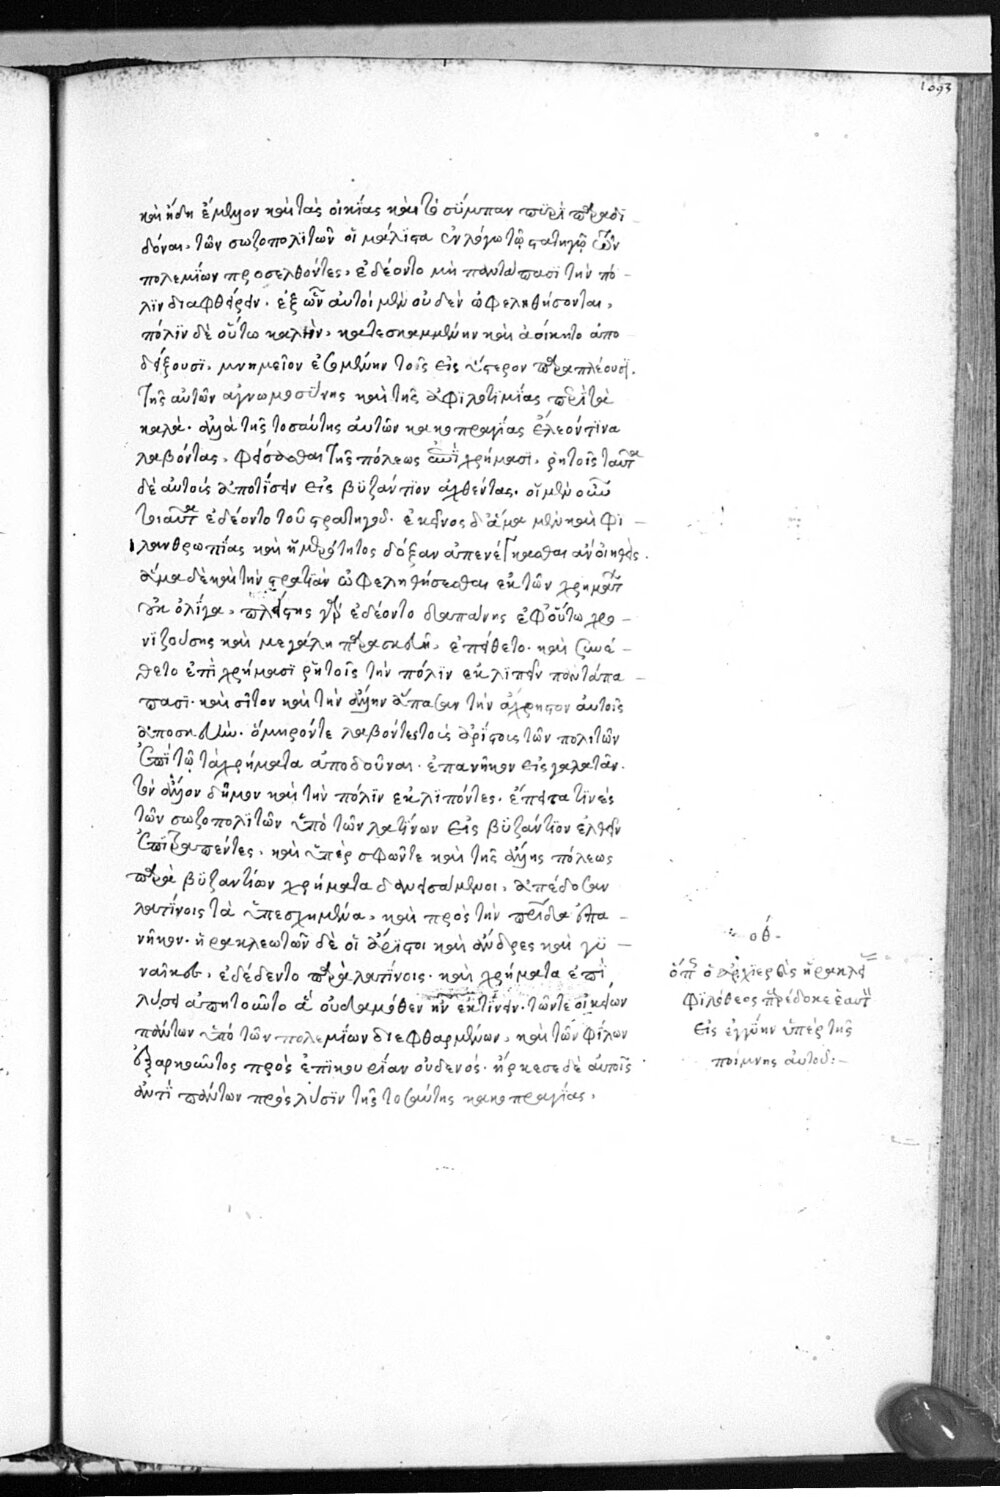 1093
καὶ ἤδη ἔμελλον καὶ τὰς οἰκίας καὶ τὸ σύμπαν πυρὶ παραδι-
δόναι. τῶν σωζοπολιτῶν οἱ μάλιστα ἐν λόγω τῷ στρατηγῷ τῶν
πολεμίων προσελθόντες, ἐδέοντο μὴ παντάπασι τὴν πό-
λιν διαφθείρειν. ἐξ ὧν αὐτοὶ μὲν οὐδὲν ὠφεληθήσονται,
πόλιν δὲ οὕτω καλὴν, κατεσκαμμένην καὶ ἀοίκητον ἀπο-
δείξουσι, μνημεῖον ἐσομένην τοῖς εἰς ὕστερον παραπλέουσι.
τῆς αὐτῶν ἀγνωμοσύνης καὶ τῆς ἀφιλοτιμίας περὶ τὰ
καλά. ἀλλὰ τῆς τοσαύτης αὐτῶν κακοπραγίας ἔλεόν τινα
λαβόντας, φείσασθαι τῆς πόλεως ἀντὶ χρήμασι, ῥητοῖς ταῦτα
δὲ αὐτοὺς ἀποτίσειν εἰς βυζάντιον ἀχθέντας. οἱ μὲν οὖν
τοιαῦτα ἐδέοντο τοῦ στρατηγοῦ. ἐκεῖνος δ' ἅμα μὲν καὶ φι-
λανθρωπίας καὶ ἡμερότητος δόξαν ἀπενέγκασθαι ἀνοικτὸς.
ἅμα δὲ καὶ τὴν στρατιὰν ὠφεληθήσεσθαι ἐκ τῶν χρημάτων
οὐκ ὀλίγα, πλείστης γὰρ ἐδέοντο δαπάνης ἐφ' οὕτω χρο-
νιζούσης καὶ μεγάλη παρασκευῇ, ἐπείθετο. καὶ συνέ-
θετο ἐπὶ χρήμασι ῥητοῖς τὴν πόλιν ἐκλιπεῖν παντάπα-
πασι. καὶ σῖτον καὶ τὴν ἄλλην ἅπασαν τὴν ἄχρηστον αὐτοῖς
ἀποσκευὴν. ὅμηρόν τε λαβόντες τοὺς ἀρίστους τῶν πολιτῶν
ἐπὶ τῷ τὰ χρήματα ἀποδοῦναι. ἐπανῆκον εἰς γαλατᾶν.
τὸν ἄλλον δῆμον καὶ τὴν πόλιν ἐκλιπόντες. ἔπειτα τινὲς
τῶν σωζοπολιτῶν ὑπὸ τῶν λατίνων εἰς βυζάντιον ἐλθεῖν
ἐπιτραπέντες. καὶ ὑπὲρ σφῶν τε καὶ τῆς ἄλλης πόλεως
παρὰ βυζαντίων χρήματα δανεισάμενοι, ἀπέδοσαν
λατίνοις τὰ ὑπεσχημένα, καὶ πρὸς τὴν πατρίδα ἐπα-
νῆκον. ἡρακλεωτῶν δὲ οἱ ἄριστοι καὶ ἄνδρες καὶ γυ-
ναῖκες, ἐδέδεντο παρὰ λατίνοις. καὶ χρήματα ἐπὶ
λύσει ἀπητοῦντο ἃ οὐδαμόθεν ἦν ἐκτίνειν. τῶν τε οἰκείων
πάντων ὑπὸ τῶν πολεμίων διεφθαρμένων, καὶ τῶν φίλων
ἐξαρκοῦντος πρὸς ἐπικουρίαν οὐδενός. ἤρκεσε δὲ αὐτοῖς
ἀντὶ πάντων πρὸς λύσιν τῆς τοσαύτης κακοπραγίας,
οθ.
ὅπ ὁ ἀρχιερεὺς ἡρακλεί
φιλόθεος παρέδωκε ἑαυτ
εἰς ἐγγύην ὑπὲρ τῆς
ποίμνης αὐτοῦ:-